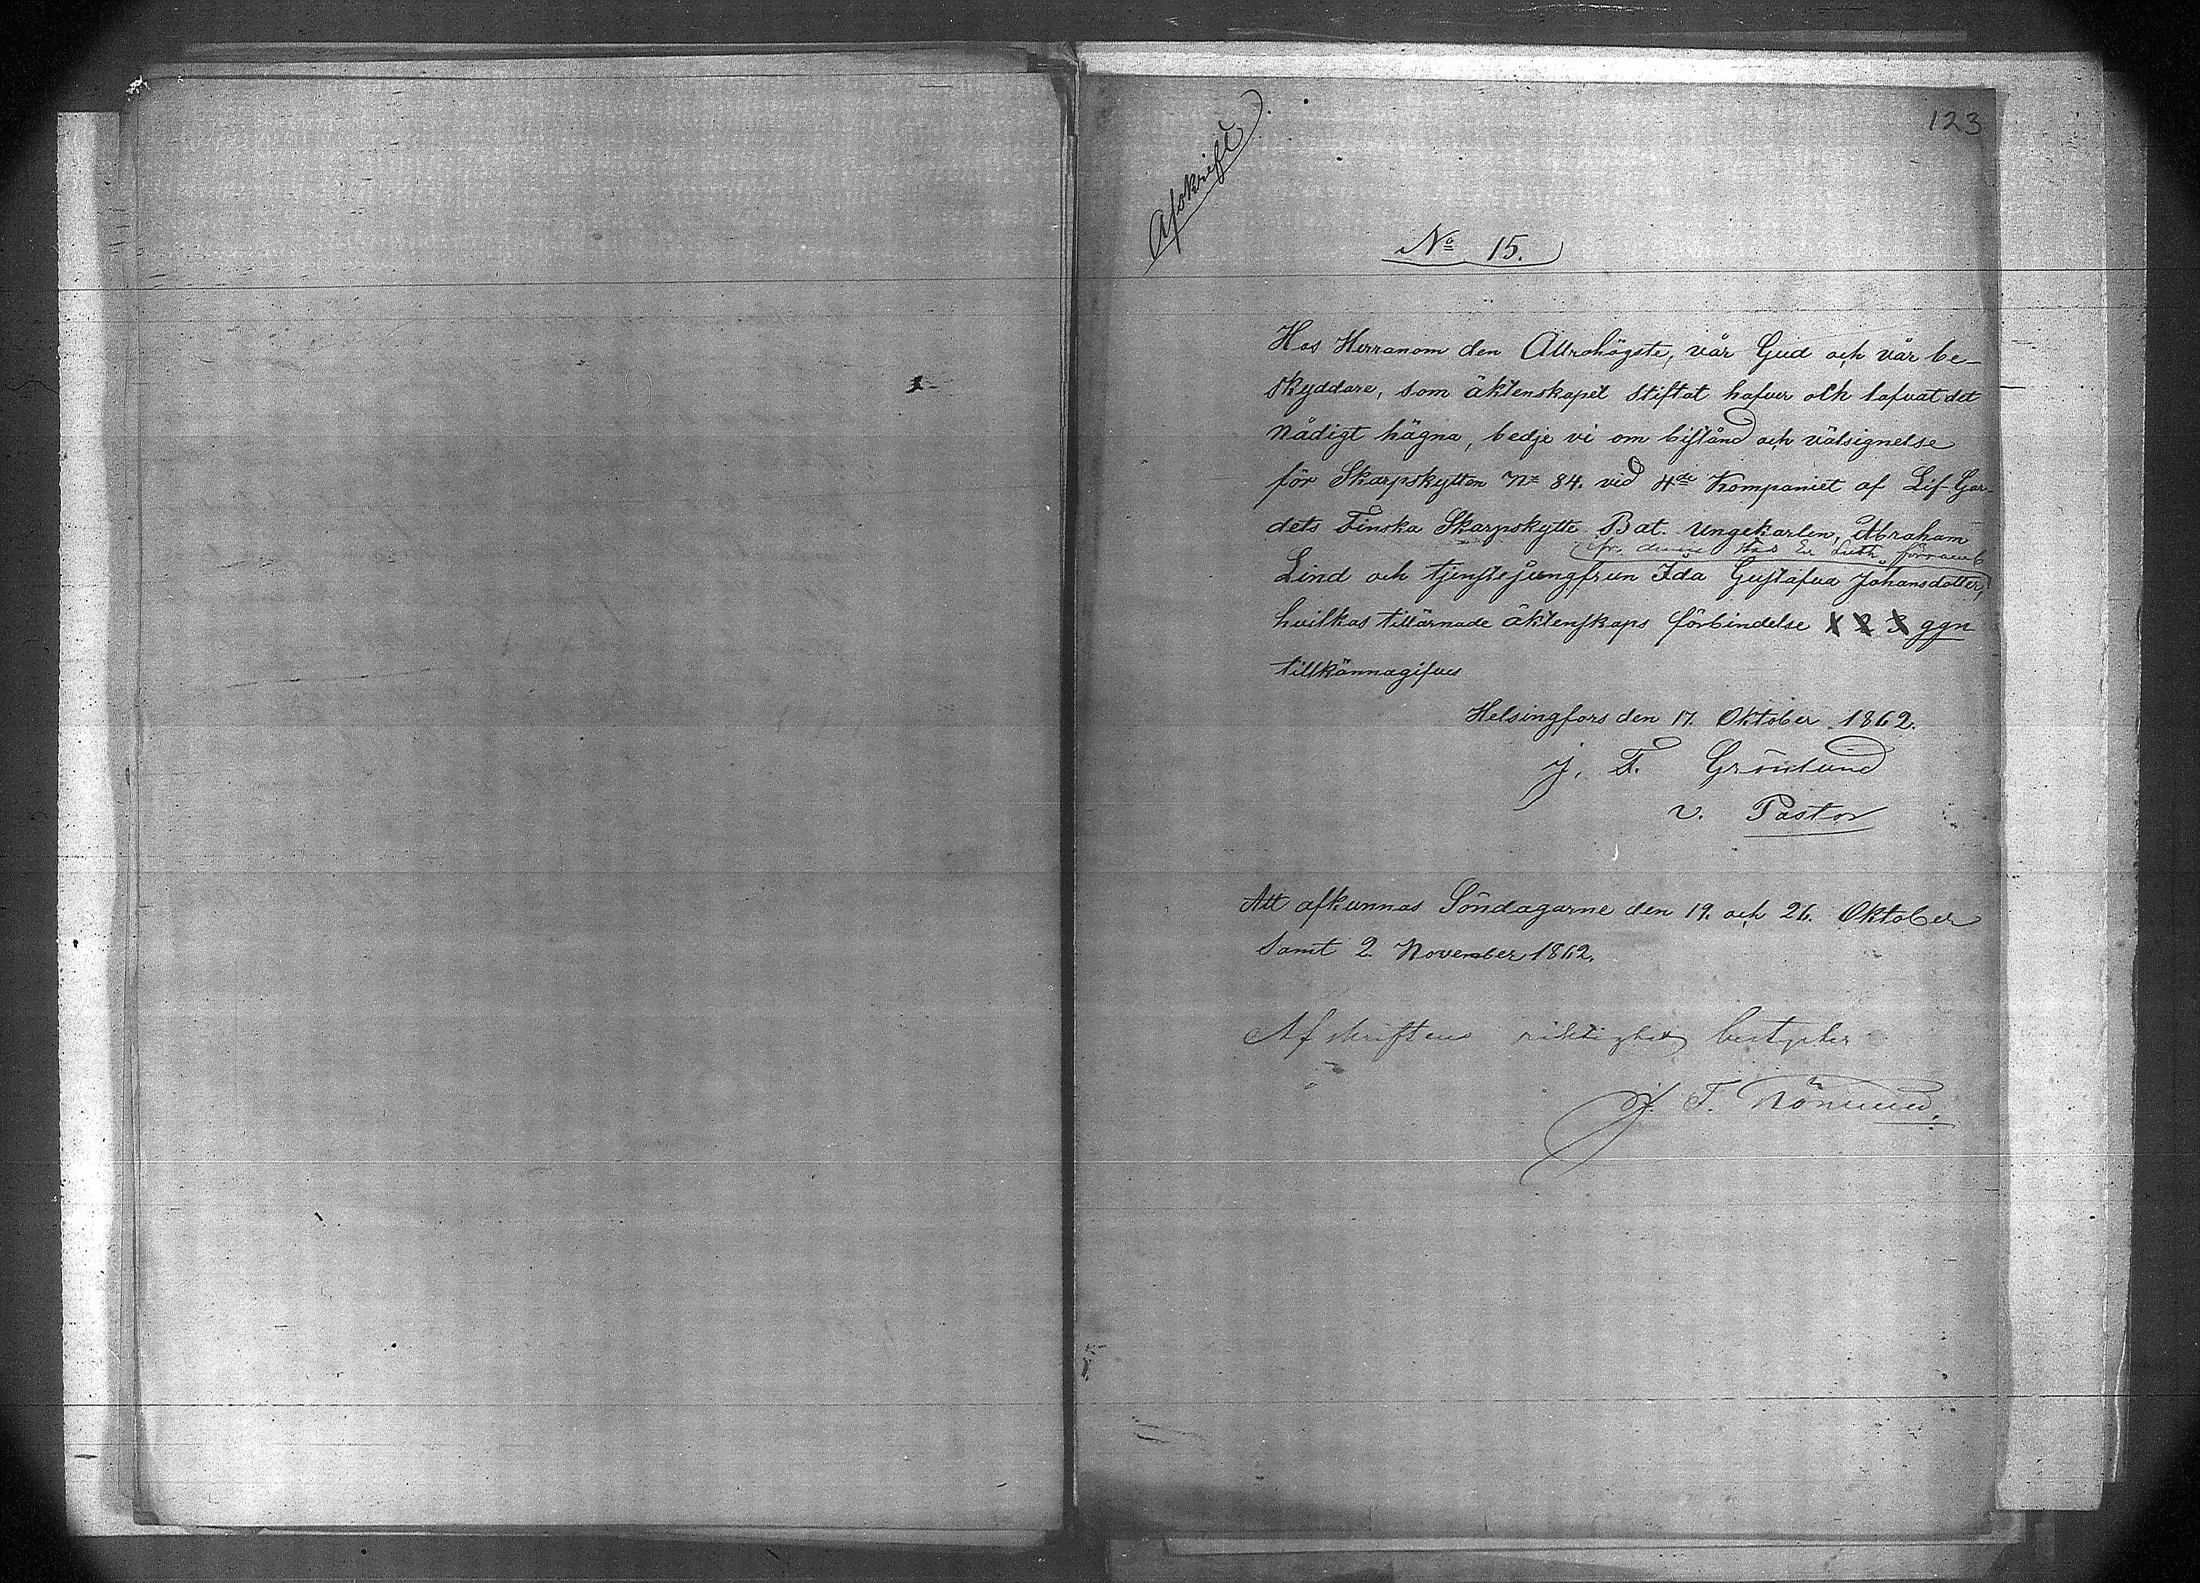 123
Afskrift.
No 15.
Hos Herranom den Allrahögste, vår Gud och vår be-
skyddare, som äktenskapet stiftat hafver och lofvat det
nådigt hägna, bedje vi om bistånd och välsignelse
för Skarpskytten No 84. vid 4de Kompaniet af Lif-Gar-
dets Finska Skarpskytte Bat. Ungekarlen, Abraham
(fr. denna stads Ev. Luth. församl.
Lind och tjenstejungfrun Ida Gustafva Johansdotter,
hvilkas tillärnade äktenskaps förbindelse 1 2 3 ggn
tillkännagifves
Helsingfors den 17. Oktober 1862.
J. F. Grönlund
v. Pastor
Att afkunnas Söndagarne den 19. och 26. Oktober
samt 2. November 1862.
Afskriftens riktighet betyder
J. F.